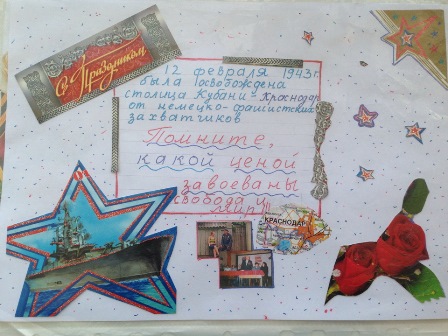 С Праздником
12 февраля 1943 г.
была освобождена
столица Кубани - Краснодар
от немецко-фашистских
захватчиков
Помните,
какой ценой
завоеваны
свобода и
мир!!!
КРАСНОДАР